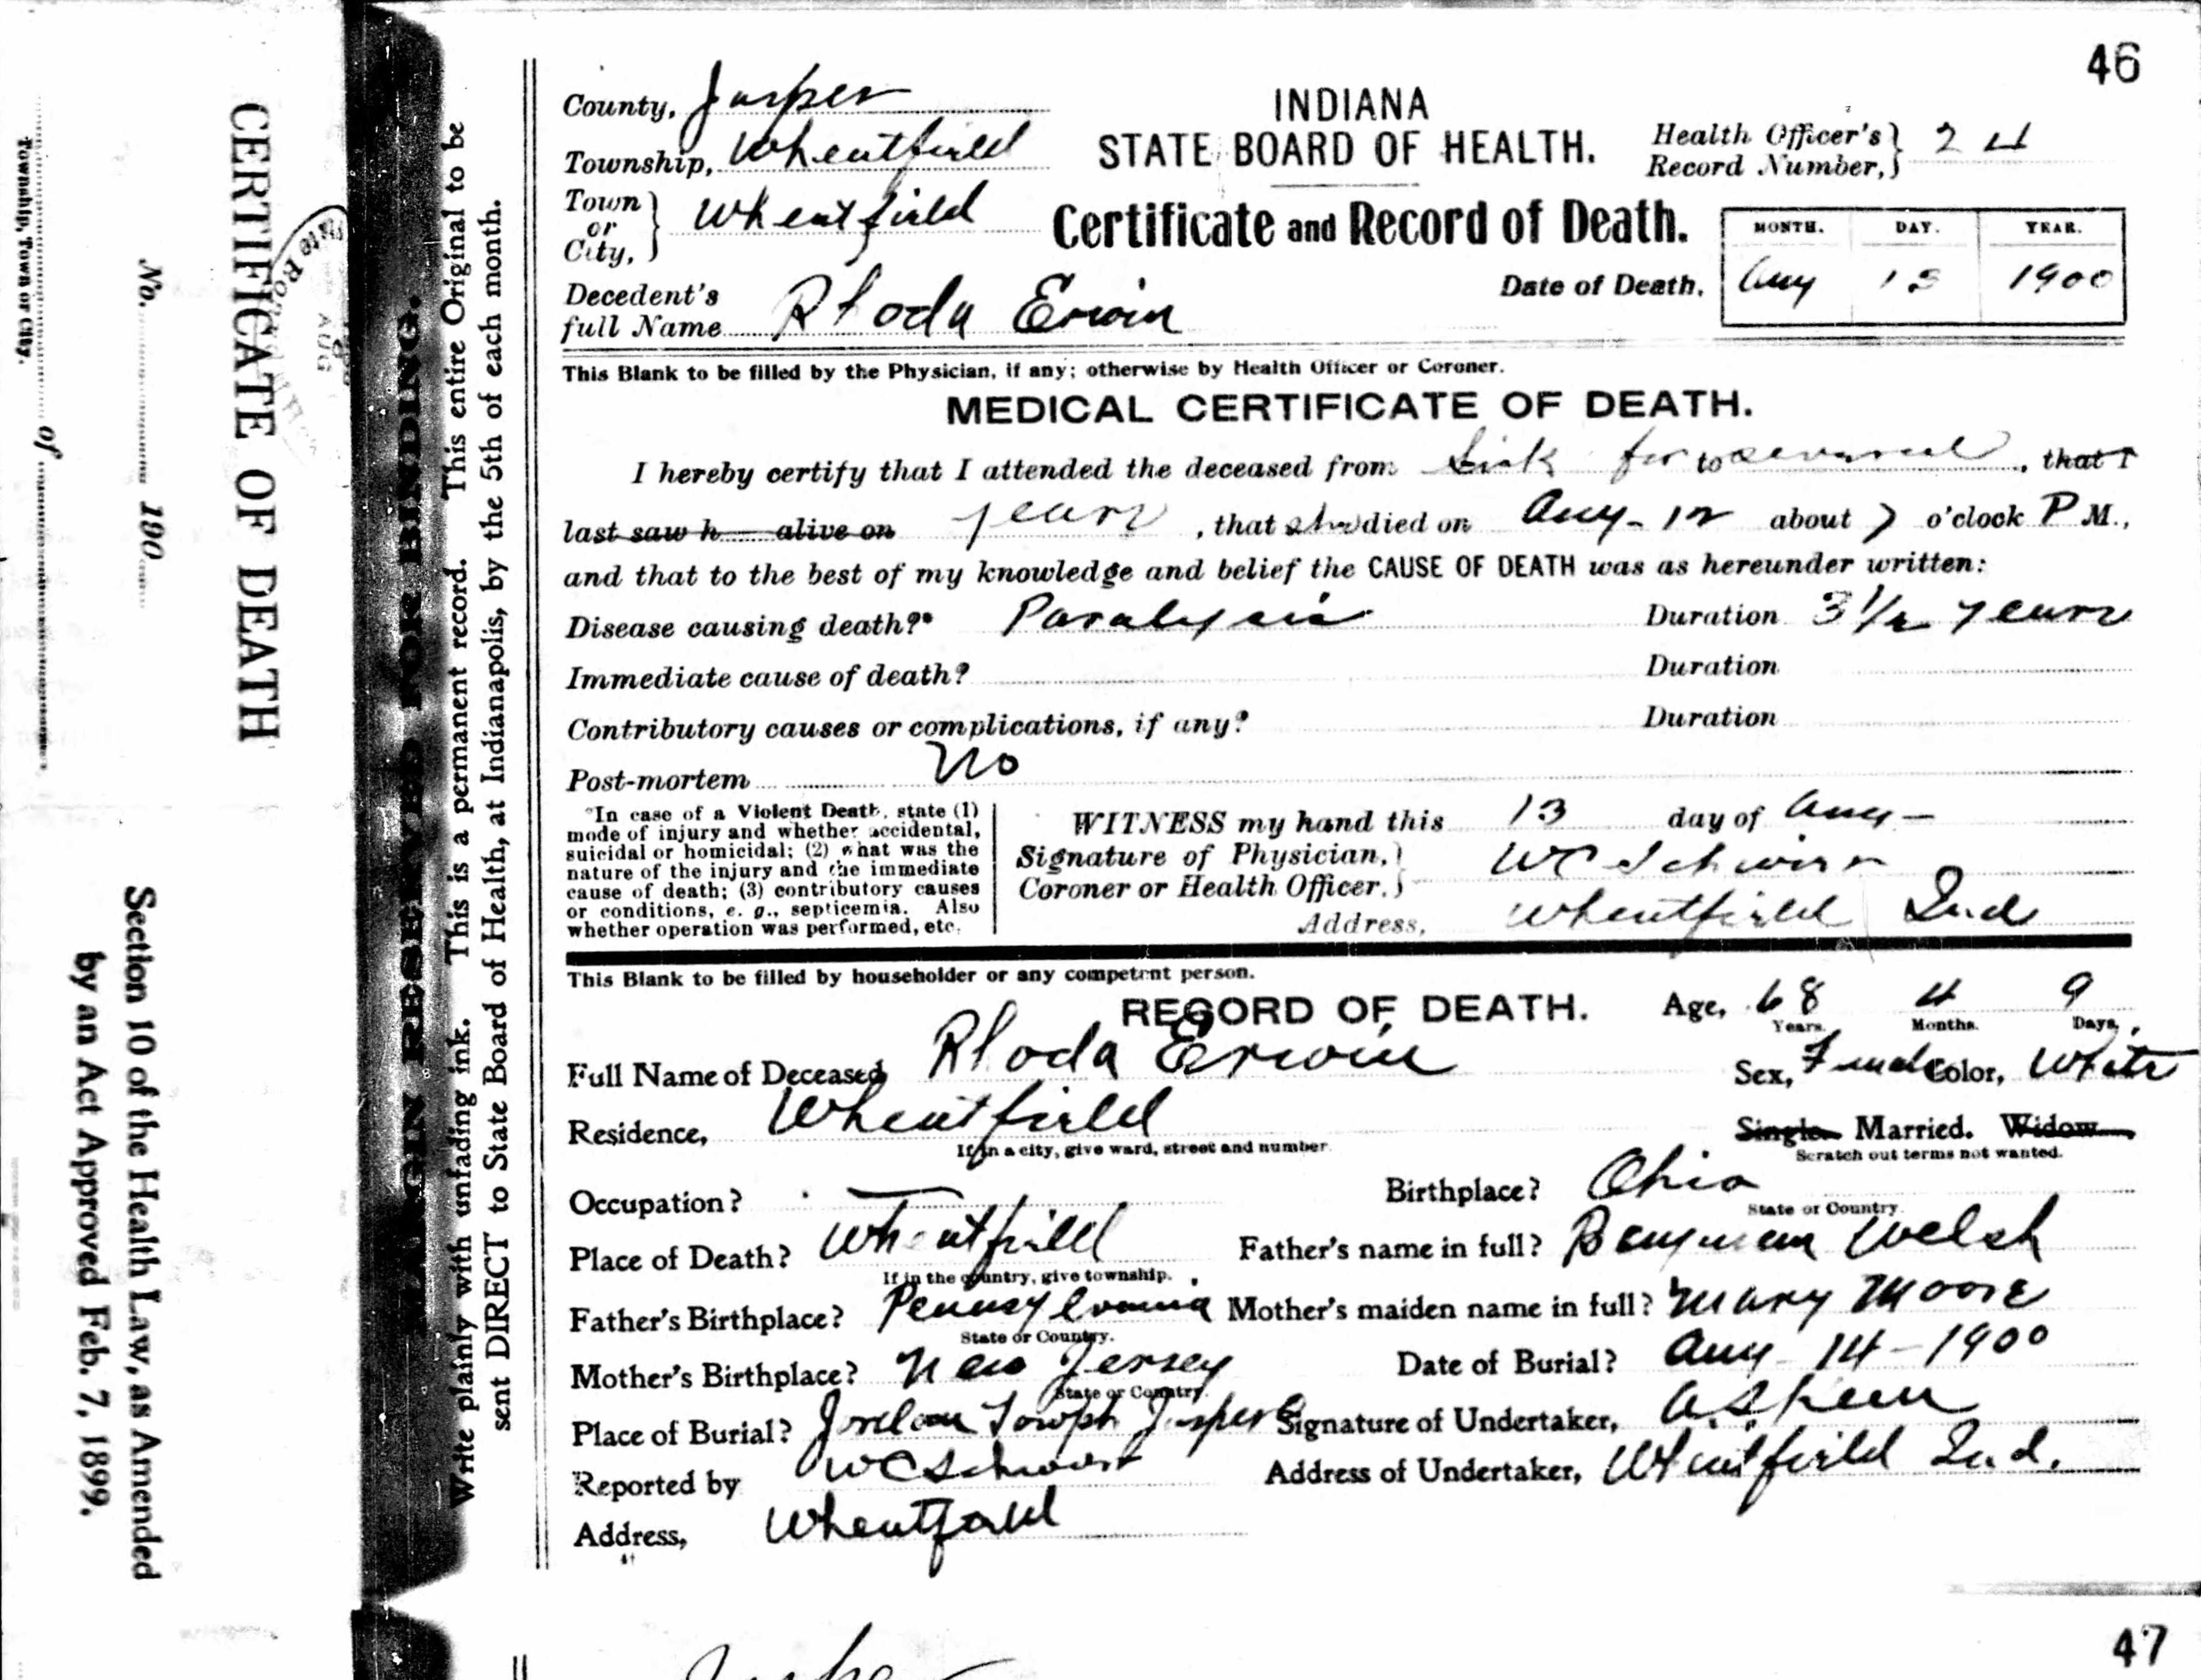 46
County, Jasper
INDIANA
Township, Wheatfield
STATE BOARD OF HEALTH.
Health Officer's Record Number, 24
Town or City, Wheatfield
Certificate and Record of Death.
MONTH. DAY. YEAR.
Decedent's full Name Rhoda Erwin
Date of Death, Aug 13 1900
This Blank to be filled by the Physician, if any; otherwise by Health Officer or Coroner.
MEDICAL CERTIFICATE OF DEATH.
I hereby certify that I attended the deceased from Sick for to several, that I
last saw h alive on years, that she died on Aug - 12 about 7 o'clock P M.,
and that to the best of my knowledge and belief the CAUSE OF DEATH was as hereunder written:
Disease causing death?* Paralysis Duration 3 1/2 years
Immediate cause of death? Duration
Contributory causes or complications, if any? Duration
Post-mortem No
*In case of a Violent Death, state (1)
mode of injury and whether accidental,
suicidal or homicidal; (2) what was the
nature of the injury and the immediate
cause of death; (3) contributory causes
or conditions, e. g., septicemia. Also
whether operation was performed, etc.
WITNESS my hand this 13 day of Aug -
Signature of Physician, Coroner or Health Officer. W C Schwier
Address, Wheatfield Ind
This Blank to be filled by householder or any competent person.
RECORD OF DEATH. Age, 68 4 9
Years. Months. Days.
Full Name of Deceased Rhoda Erwin
Sex, Female Color, White
Residence, Wheatfield
If in a city, give ward, street and number.
Single. Married. Widow
Scratch out terms not wanted.
Occupation? —
Birthplace? Ohio
State or Country.
Place of Death? Wheatfield
If in the country, give township.
Father's name in full? Benjman Welsh
Father's Birthplace? Pennsylvania
State or Country.
Mother's maiden name in full? Mary Moore
Mother's Birthplace? New Jersey
State or Country.
Date of Burial? Aug 14 - 1900
Place of Burial? Jordan Towp Jasper C
Signature of Undertaker,
Reported by W C
Address of Undertaker, Wheatfield Ind.
Address, Wheatfield
47
Jaspe
MARGIN RESERVED FOR BINDING.
Write plainly with unfading ink. This is a permanent record. This entire Original to be
sent DIRECT to State Board of Health, at Indianapolis, by the 5th of each month.
CERTIFICATE OF DEATH
No. 190
of
Township, Town or City.
Section 10 of the Health Law, as Amended
by an Act Approved Feb. 7, 1899.
AUG